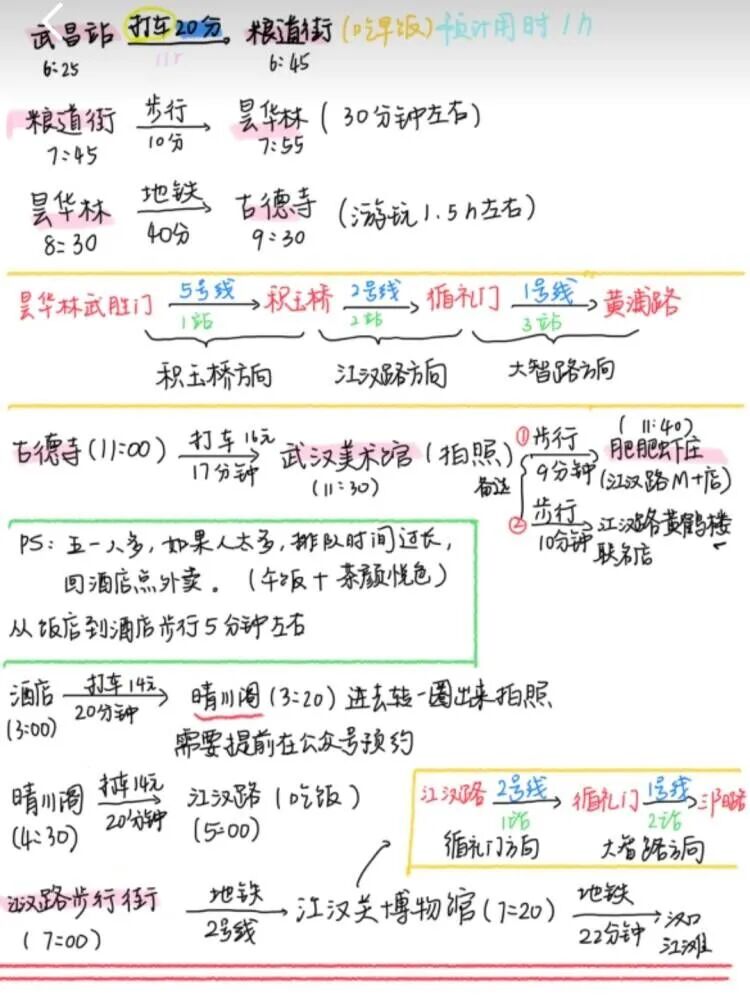 武昌站 打车20分 粮道街 (吃早饭) 预计用时1h
6:25 11r 6:45
粮道街 步行 10分 昙华林 (30分钟左右)
7:45 7:55
昙华林 地铁 40分 古德寺 (游玩1.5h左右)
8:30 9:30
昙华林武胜门 5号线 积玉桥 2号线 循礼门 1号线 黄浦路
1站 2站 3站
积玉桥方向 江汉路方向 大智路方向
古德寺(11:00) 打车16元 17分钟 武汉美术馆(拍照)
(11:30)
备选
① 步行 9分钟 肥肥虾庄 (11:40)
(江汉路M+店)
② 步行 10分钟 江汉路黄鹤楼
联名店
PS: 五一人多,如果人太多,排队时间过长,
回酒店点外卖。(午饭+茶颜悦色)
从饭店到酒店步行5分钟左右
酒店 打车14元 20分钟 晴川阁(3:20)进去转一圈出来拍照
(3:00) 需要提前在公众号预约
晴川阁 打车14元 20分钟 江汉路(吃饭)
(4:30) (5:00)
江汉路 2号线 循礼门 1号线
1站 2站
循礼门方向 大智路方向
江汉路步行街 地铁 2号线 江汉关博物馆(7:20) 地铁 22分钟 汉口
(7:00) 江滩